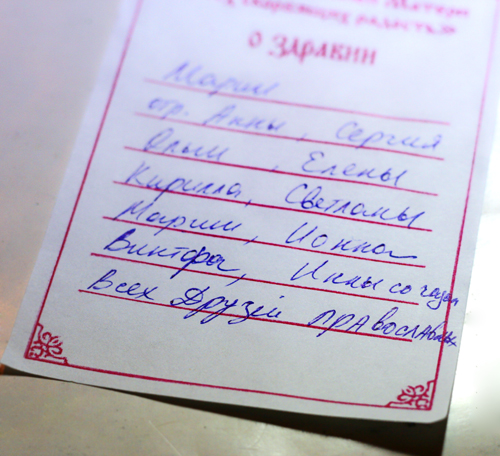 Матери
скорбящих радость»
О ЗДРАВИИ
Марии
отр. Анны, Сергия
Ольги, Елены
Кирилла, Светланы
Марии, Иоанна
Виктора, Инны со чады
Всех Друзей православных